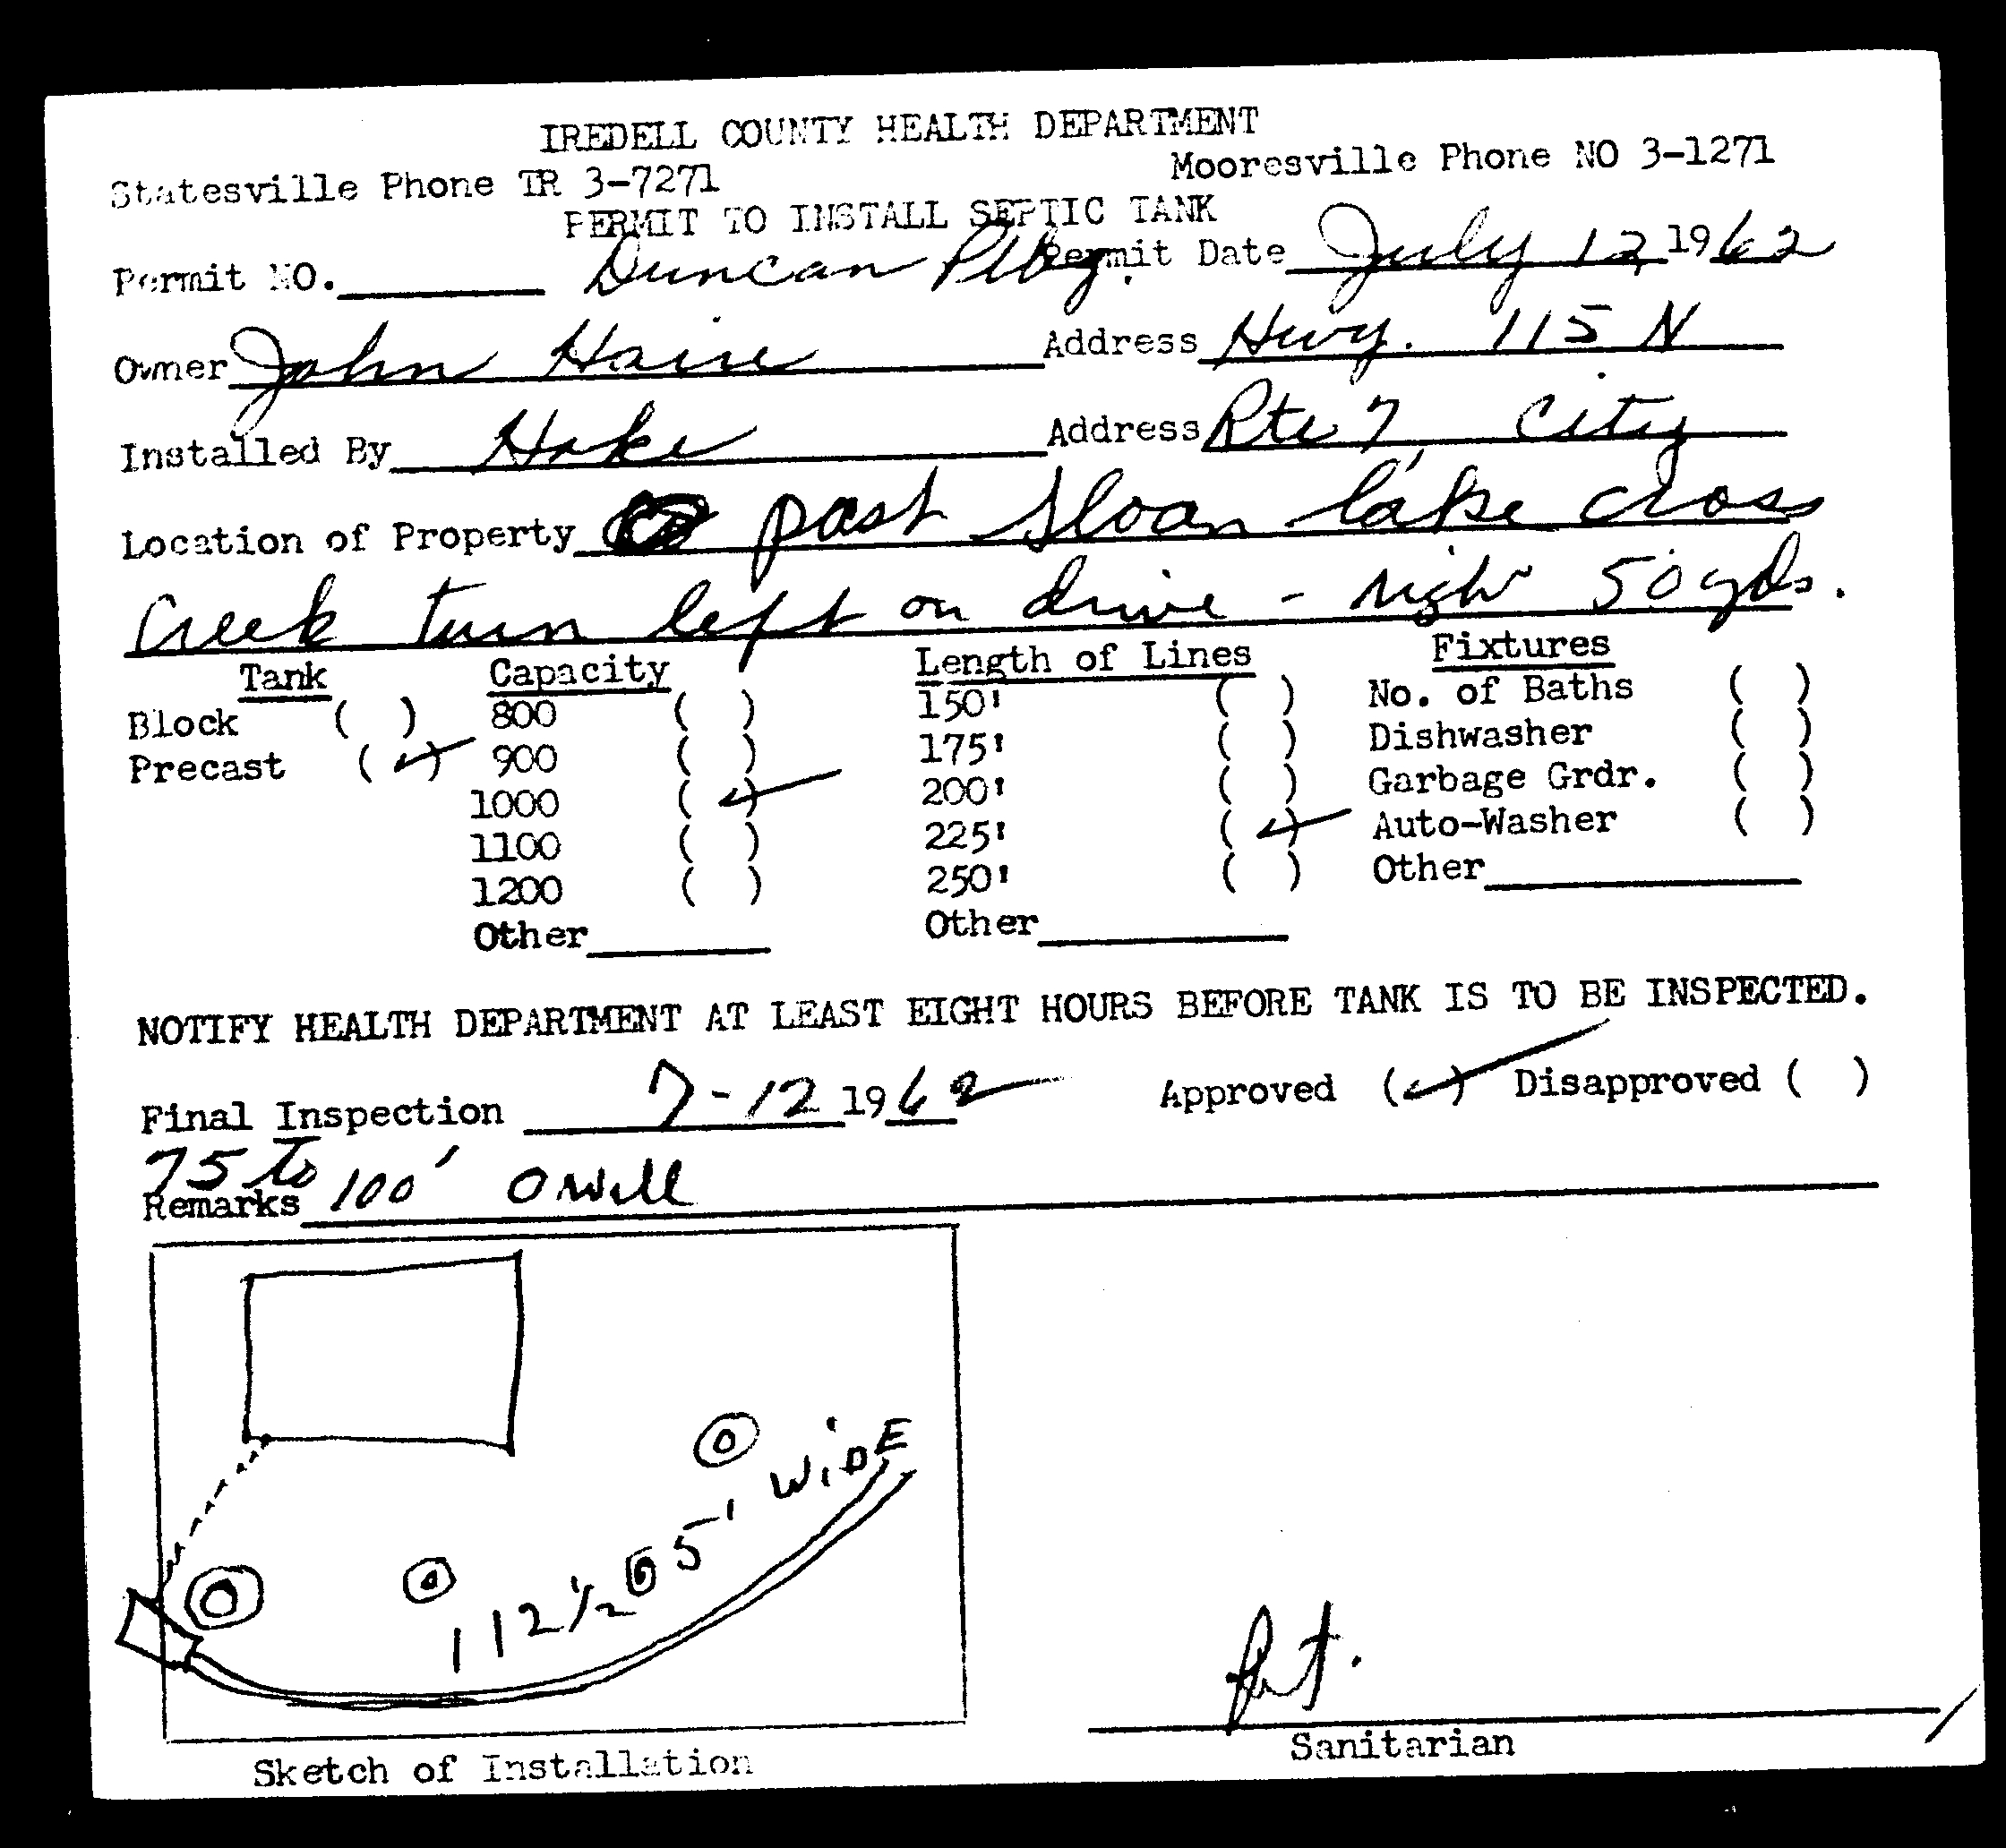 IREDELL COUNTY HEALTH DEPARTMENT
Statesville Phone TR 3-7271 Mooresville Phone NO 3-1271
PERMIT TO INSTALL SEPTIC TANK
Permit NO. Duncan Plbg. Permit Date July 12 1962
Owner John Address Hwy. 115 N
Installed By Hoke Address Rte 7 City
Location of Property past Sloan lake cross
Creek turn left on drive - right 50 yds.
Tank Capacity Length of Lines Fixtures
Block ( ) 800 ( ) 150' ( ) No. of Baths ( )
Precast (✓) 900 ( ) 175' ( ) Dishwasher ( )
1000 (✓) 200' ( ) Garbage Grdr. ( )
1100 ( ) 225' (✓) Auto-Washer ( )
1200 ( ) 250' ( ) Other
Other Other
NOTIFY HEALTH DEPARTMENT AT LEAST EIGHT HOURS BEFORE TANK IS TO BE INSPECTED.
Final Inspection 7-12 1962 Approved (✓) Disapproved ( )
75 to
Remarks 100' O Well
112 1/2 5' WIDE
Sanitarian
Sketch of Installation